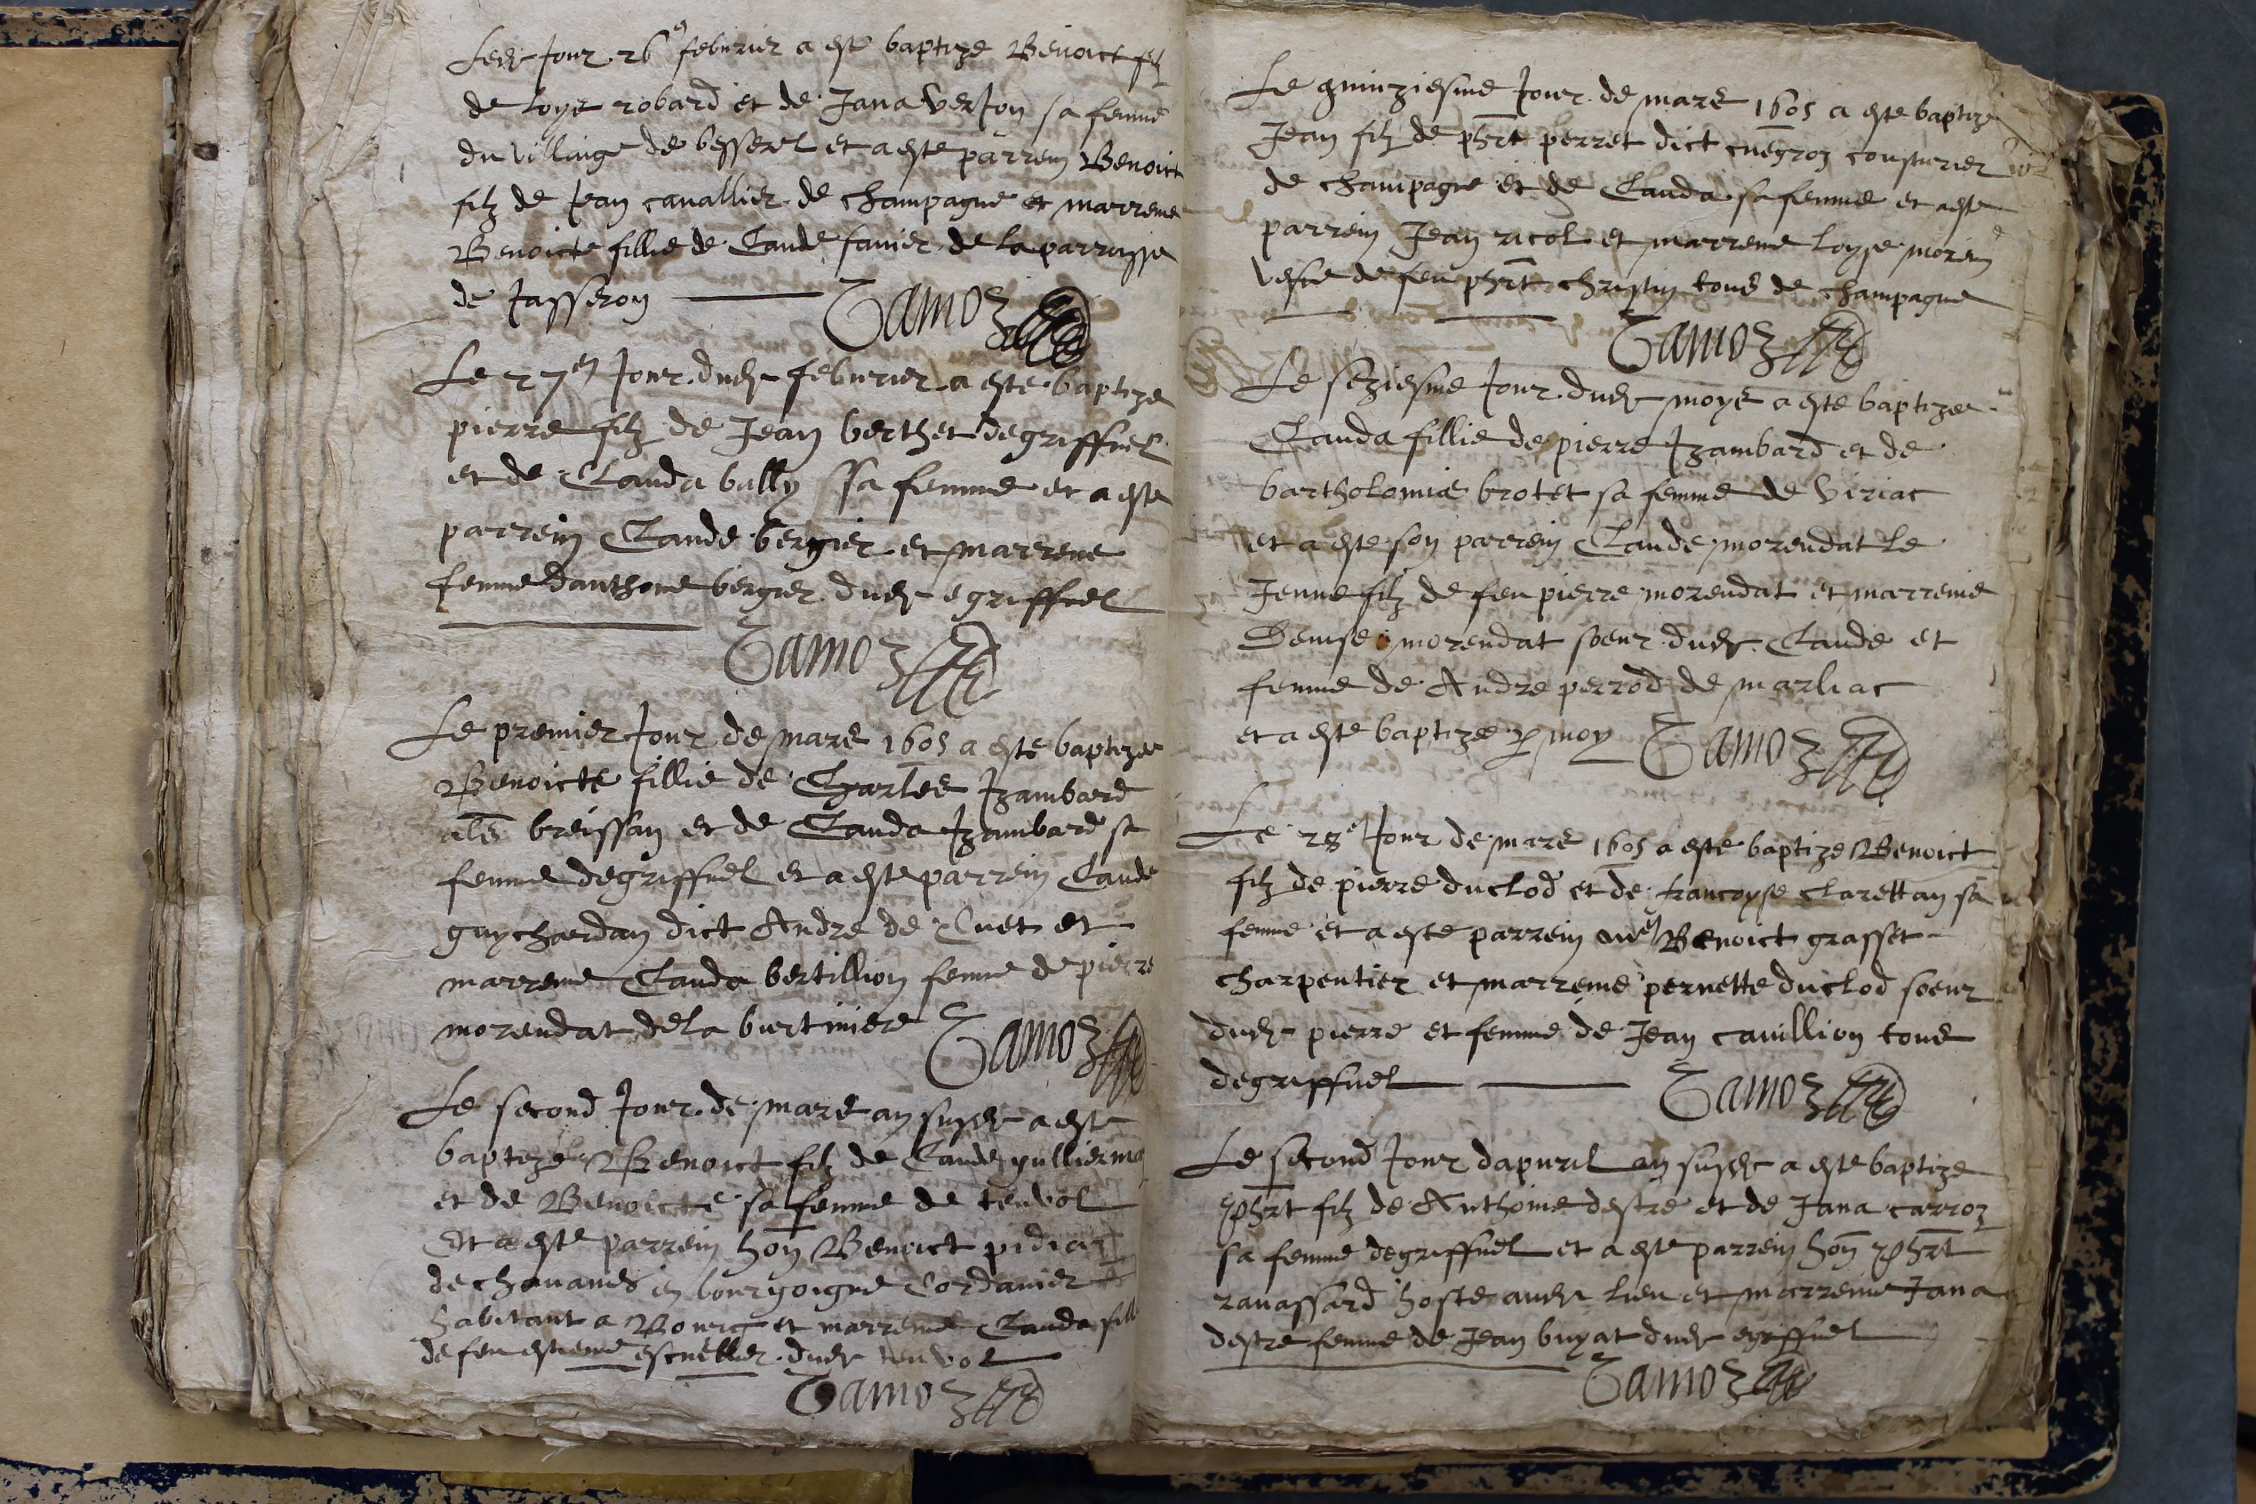 Led Jour 26e febvrier a este baptize Benoict filz
de loys robard et de Jana verJon sa femme
du village de besserel et a este parrein Benoict
filz de Jean cavallier de champagne et marreme
Benoicte fillie de Claude favier de la parroisse
de Jasseron Tamoz
Le 27e Jour dud febvrier a este baptize
pierre filz de Jean berthet degriffuel
et de Clauda bally sa femme et a este
parrein Claude bergier et marreme
femme danthoine bergier dud egriffuel
Tamoz
Le premier Jour de mars 1605 a este baptizee
Benoicte fillie de Charles Jzambard
als breissan et de Clauda Jzambard sa
femme degriffuel et a este parrein Claude
guychardan dict Andre de Cuet et
marreme Clauda bertillion femme de pierre
morendat dela burtiniere Tamoz
Le second Jour de mars an susd a este
baptize Benoict filz de Claude gullierme
et de Benoicte sa femme de tenvol
Et a este parrein hon Benoict pidiat
de chavanes en bourgoigne Cordanier
habitant a Bourg et marreme Clauda fille
de feu estienne escuellier dud tenvol
Tamoz
Le quinziesme Jour de mars 1605 a este baptize
Jean filz de phrt perret dict cuegroz cousturier
de champagne et de Clauda sa femme et a este
parrein Jean ricol et marreme loyse morin
vefve de feu phrt christin tous de champagne
Tamoz
Le seziesme Jour dud moys a este baptizee
Clauda fillie de pierre Jzambard et de
bartholomie brotet sa femme de Viriac
et a este son parrein Claude morendat le
Jeune filz de feu pierre morendat et marreme
Denise morendat soeur dud Claude et
femme de Andre perrod de marliac
et a este baptizee p moy Tamoz
Le 28e Jour de mars 1605 a este baptize Benoict
filz de pierre duclod et de francoyse clarettan sa
femme et a este parrein me Benoict grasset
charpentier et marreme pernette duclod soeur
dud pierre et femme de Jean cavillion tous
degriffuel Tamoz
Le second Jour dapvril an susd a este baptize
phrt filz de Anthoine destre et de Jana carroz
sa femme degriffuel et a este parrein hon phrt
ravassard hoste aud lieu et marreme Jana
destre femme de Jean buyat dud egriffuel
Tamoz